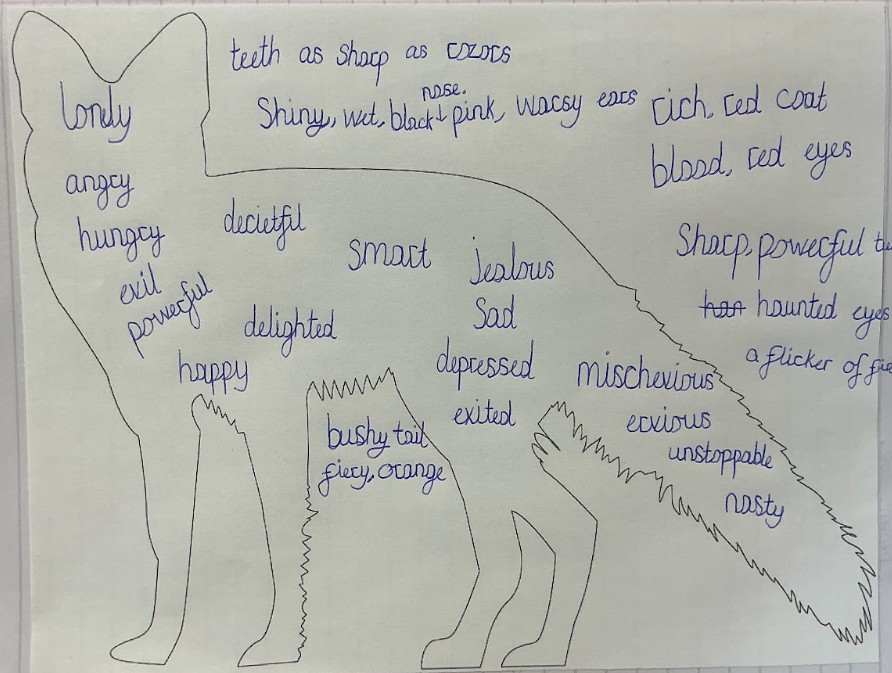 teeth as sharp as rozors
nose.
Shiny, wet, black + pink, wacsy ears
rich, red coat
blood, red eyes
lonely
angry
hungry
decietful
smart
jealous
Sharp, powerful
evil
powerful
delighted
Sad
haunted eyes
happy
depressed
mischevious
a flicker of
exited
bushy tail
fiery, orange
ervious
unstoppable
nasty